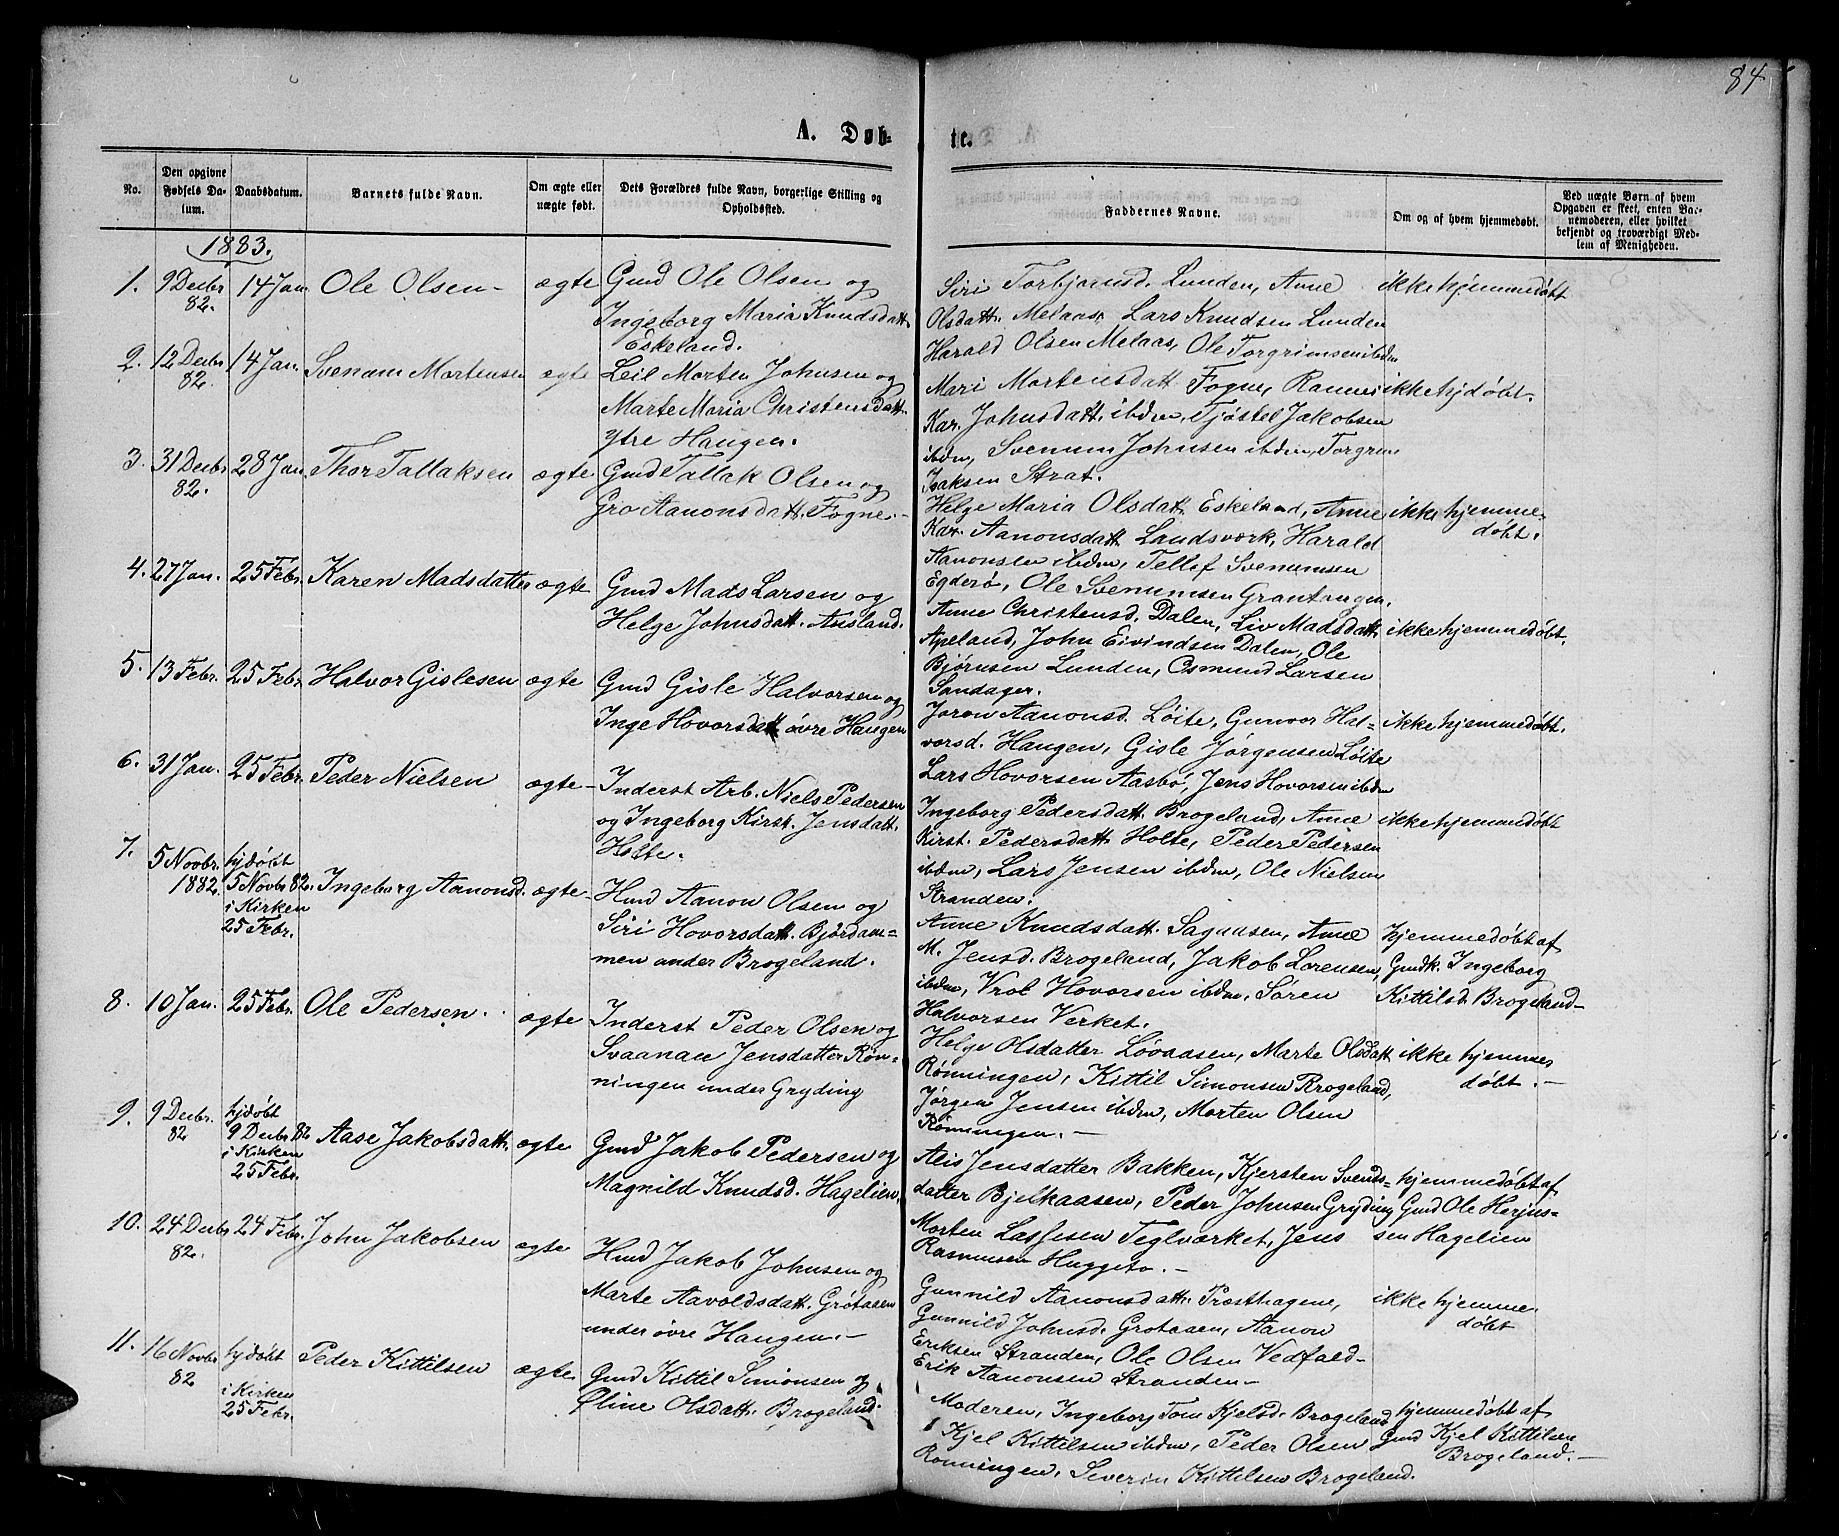 84
A. Døb-
te.
No.
Den opgivne Fødsels Da-
tum.
Daabsdatum.
Barnets fulde Navn.
Om ægte eller
uægte født.
Dets Forældres fulde Navn, borgerlige Stilling og
Opholdssted.
Faddernes Navne.
Om og af hvem hjemmedøbt.
Ved uægte Børn af hvem
Opgaven er skeet, enten Bar-
nemoderen, eller hvilket
bekjendt og troværdigt Med-
lem af Menigheden.
1883.
1.
9 Decbr
82.
14 Jan.
Ole Olsen-
ægte
Gmd Ole Olsen og
Ingeborg Maria Knudsdatt.
Eskeland.
Siri Torbjornsd. Lunden, Anne
Olsdatt. Melaas, Lars Knudsen Lunden
Harald Olsen Melaas, Ole Torgrimsen ibdm
ikke hjemmedøbt
2.
12 Decbr
82.
14 Jan.
Svenam Mortensen
ægte
Leil Morten Johnsen og
Marte Maria Christensdatt.
Ytre Haugen.
Mari Mortensdatt. Fogne,
Kar. Johnsdatt. ibdm, Tjøstel Jakobsen
ibdm, Svenum Johnsen ibdm, Torgrim
Isaksen Strat.
ikke hjdøbt.
3.
31 Decbr
82.
28 Jan.
Thor Tallaksen
ægte
Gmd Tallak Olsen og
Gro Aanonsdatt. Fogne.-
Helge Maria Olsdatt. Eskeland, Anne
Kar. Aanonsdatt. Landsværk, Harald
Aanonsen ibdm, Tellef Svenumsen
Egderø, Ole Svenumsen Grantangen.
ikke hjemme-
døbt.
4.
27 Jan.
25 Febr.
Karen Madsdatter
ægte
Gmd Mads Larsen og
Helge Johnsdatt. Ausland.
Anne Christensd. Dalen, Liv Madsdatt.
Apeland, John Eivindsen Dalen, Ole
Bjørnsen Lunden, Osmund Larsen
Sandager.
ikke hjemmedøbt.
5.
13 Febr.
25 Febr.
Halvor Gislesen
ægte
Gmd Gisle Halvorsen og
Inge Hovorsdatt. øvre Haugen
Joron Aanonsd. Løite, Gunvor Hal-
vorsd. Haugen, Gisle Jørgensen Løite
Lars Hovorsen Aasbø, Jens Hovorsen ibdm
ikke hjemmedøbt.
6.
31 Jan.
25 Febr.
Peder Nielsen
ægte-
Inderst Arb. Niels Pedersen
og Ingeborg Kirst. Jensdatt.
Holte.
Ingeborg Pedersdatt. Brogeland, Anne
Kirst. Pedersdatt. Holte, Peder Pedersen
ibdm, Lars Jensen ibdm, Ole Nielsen
Stranden.
ikke hjemmedøbt
7.
5 Novbr.
1882.
hjdøbt
5 Novbr 82.
i Kirken
25 Febr.
Ingeborg Aanonsd.
ægte-
Hmd Aanon Olsen og
Siri Hovorsdatt. Bjørdam-
men under Brogeland.
Anne Knudsdatt. Sagaasen, Anne
M. Jensd. Brogeland, Jakob Lorensen,
ibdm, Vrol Hovorsen ibdm, Søren
Halvorsen Verket.
hjemmedøbt af
Gmdk. Ingeborg
Kittilsd. Brogeland-
8.
10 Jan.
25 Febr.
Ole Pedersen.
ægte
Inderst Peder Olsen og
Svaanau Jensdatter Røn-
ningen under Gryding
Helge Olsdatter Løvaasen, Marte Olsdatt
Rønningen, Kittil Simonsen Brogeland,
Jørgen Jensen ibdm, Morten Olsen
Rønningen.-
ikke hjemme-
døbt.-
9.
9 Decbr.
82
hjdøbt
9 Decbr 82
i Kirken
25 Febr.
Aase Jakobsdatt.
ægte
Gmd Jakob Pedersen og
Magnild Knudsd. Hagelien.
Alis Jensdatter Bakken, Kjersten Svends-
datter Bjelkaasen, Peder Johnsen Gryding
Morten Lassesen Teglværket, Jens
Rasmusen Huggeto.-
hjemmedøbt af
Gmd Ole Herjus-
sen Hagelien
10.
24 Decbr
82.
24 Febr.
John Jakobsen
ægte
Hmd Jakob Johnsen og
Marte Aavoldsdatt. Grøtaaen
under øvre Haugen.-
Gunnild Aanonsdatt. Præsthagene,
Gunnild Johnsd. Grotaaen, Aanon
Eriksen Stranden, Ole Olsen Vedfald-
Erik Aanonsen Stranden-
ikke hjemme-
døbt
11.
16 Novbr
82
hjdøbt
i Kirken
25 Febr.
Peder Kittilsen
ægte
Gmd Kittil Simonsen og
Øline Olsdatt. Brogeland.
Moderen, Ingeborg Tom Kjelsd. Brogeland
Kjel Kittilsen ibdm, Peder Olsen
Rønningen, Severin Kittilsen Brogeland.
hjemmedøbt af
Gmd Kjel Kittilsen
Brogeland.-